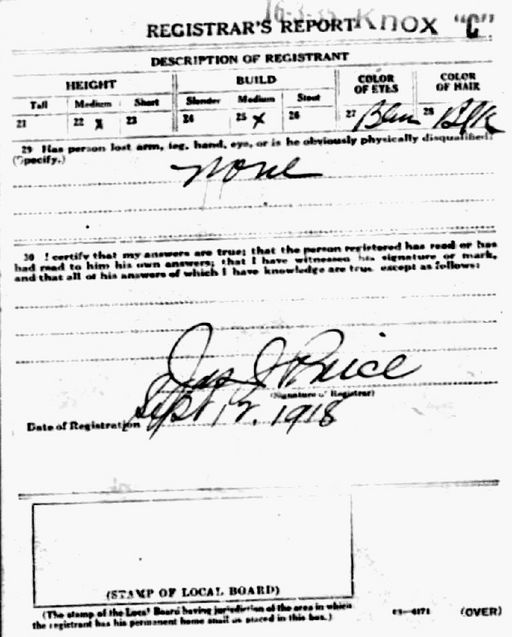 16-3-35 Knox "C"
REGISTRAR'S REPORT
DESCRIPTION OF REGISTRANT
HEIGHT BUILD COLOR OF EYES COLOR OF HAIR
Tall Medium Short Slender Medium Stout
21 22 x 23 24 25 x 26 27 Blue 28 Blk
29 Has person lost arm, leg, hand, eye, or is he obviously physically disqualified?
(Specify.)
None
30 I certify that my answers are true; that the person registered has read or has
had read to him his own answers; that I have witnessed his signature or mark,
and that all of his answers of which I have knowledge are true, except as follows:
Jas J Price
(Signature of Registrar)
Date of Registration Sept 12, 1918
(STAMP OF LOCAL BOARD)
(The stamp of the Local Board having jurisdiction of the area in which
the registrant has his permanent home shall be placed in this box.)
03—6171 (OVER)